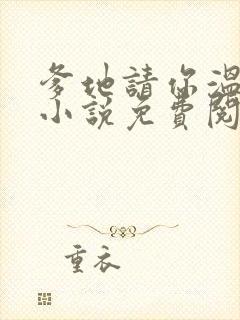 爹地請你溫
小說免費閱
重衣